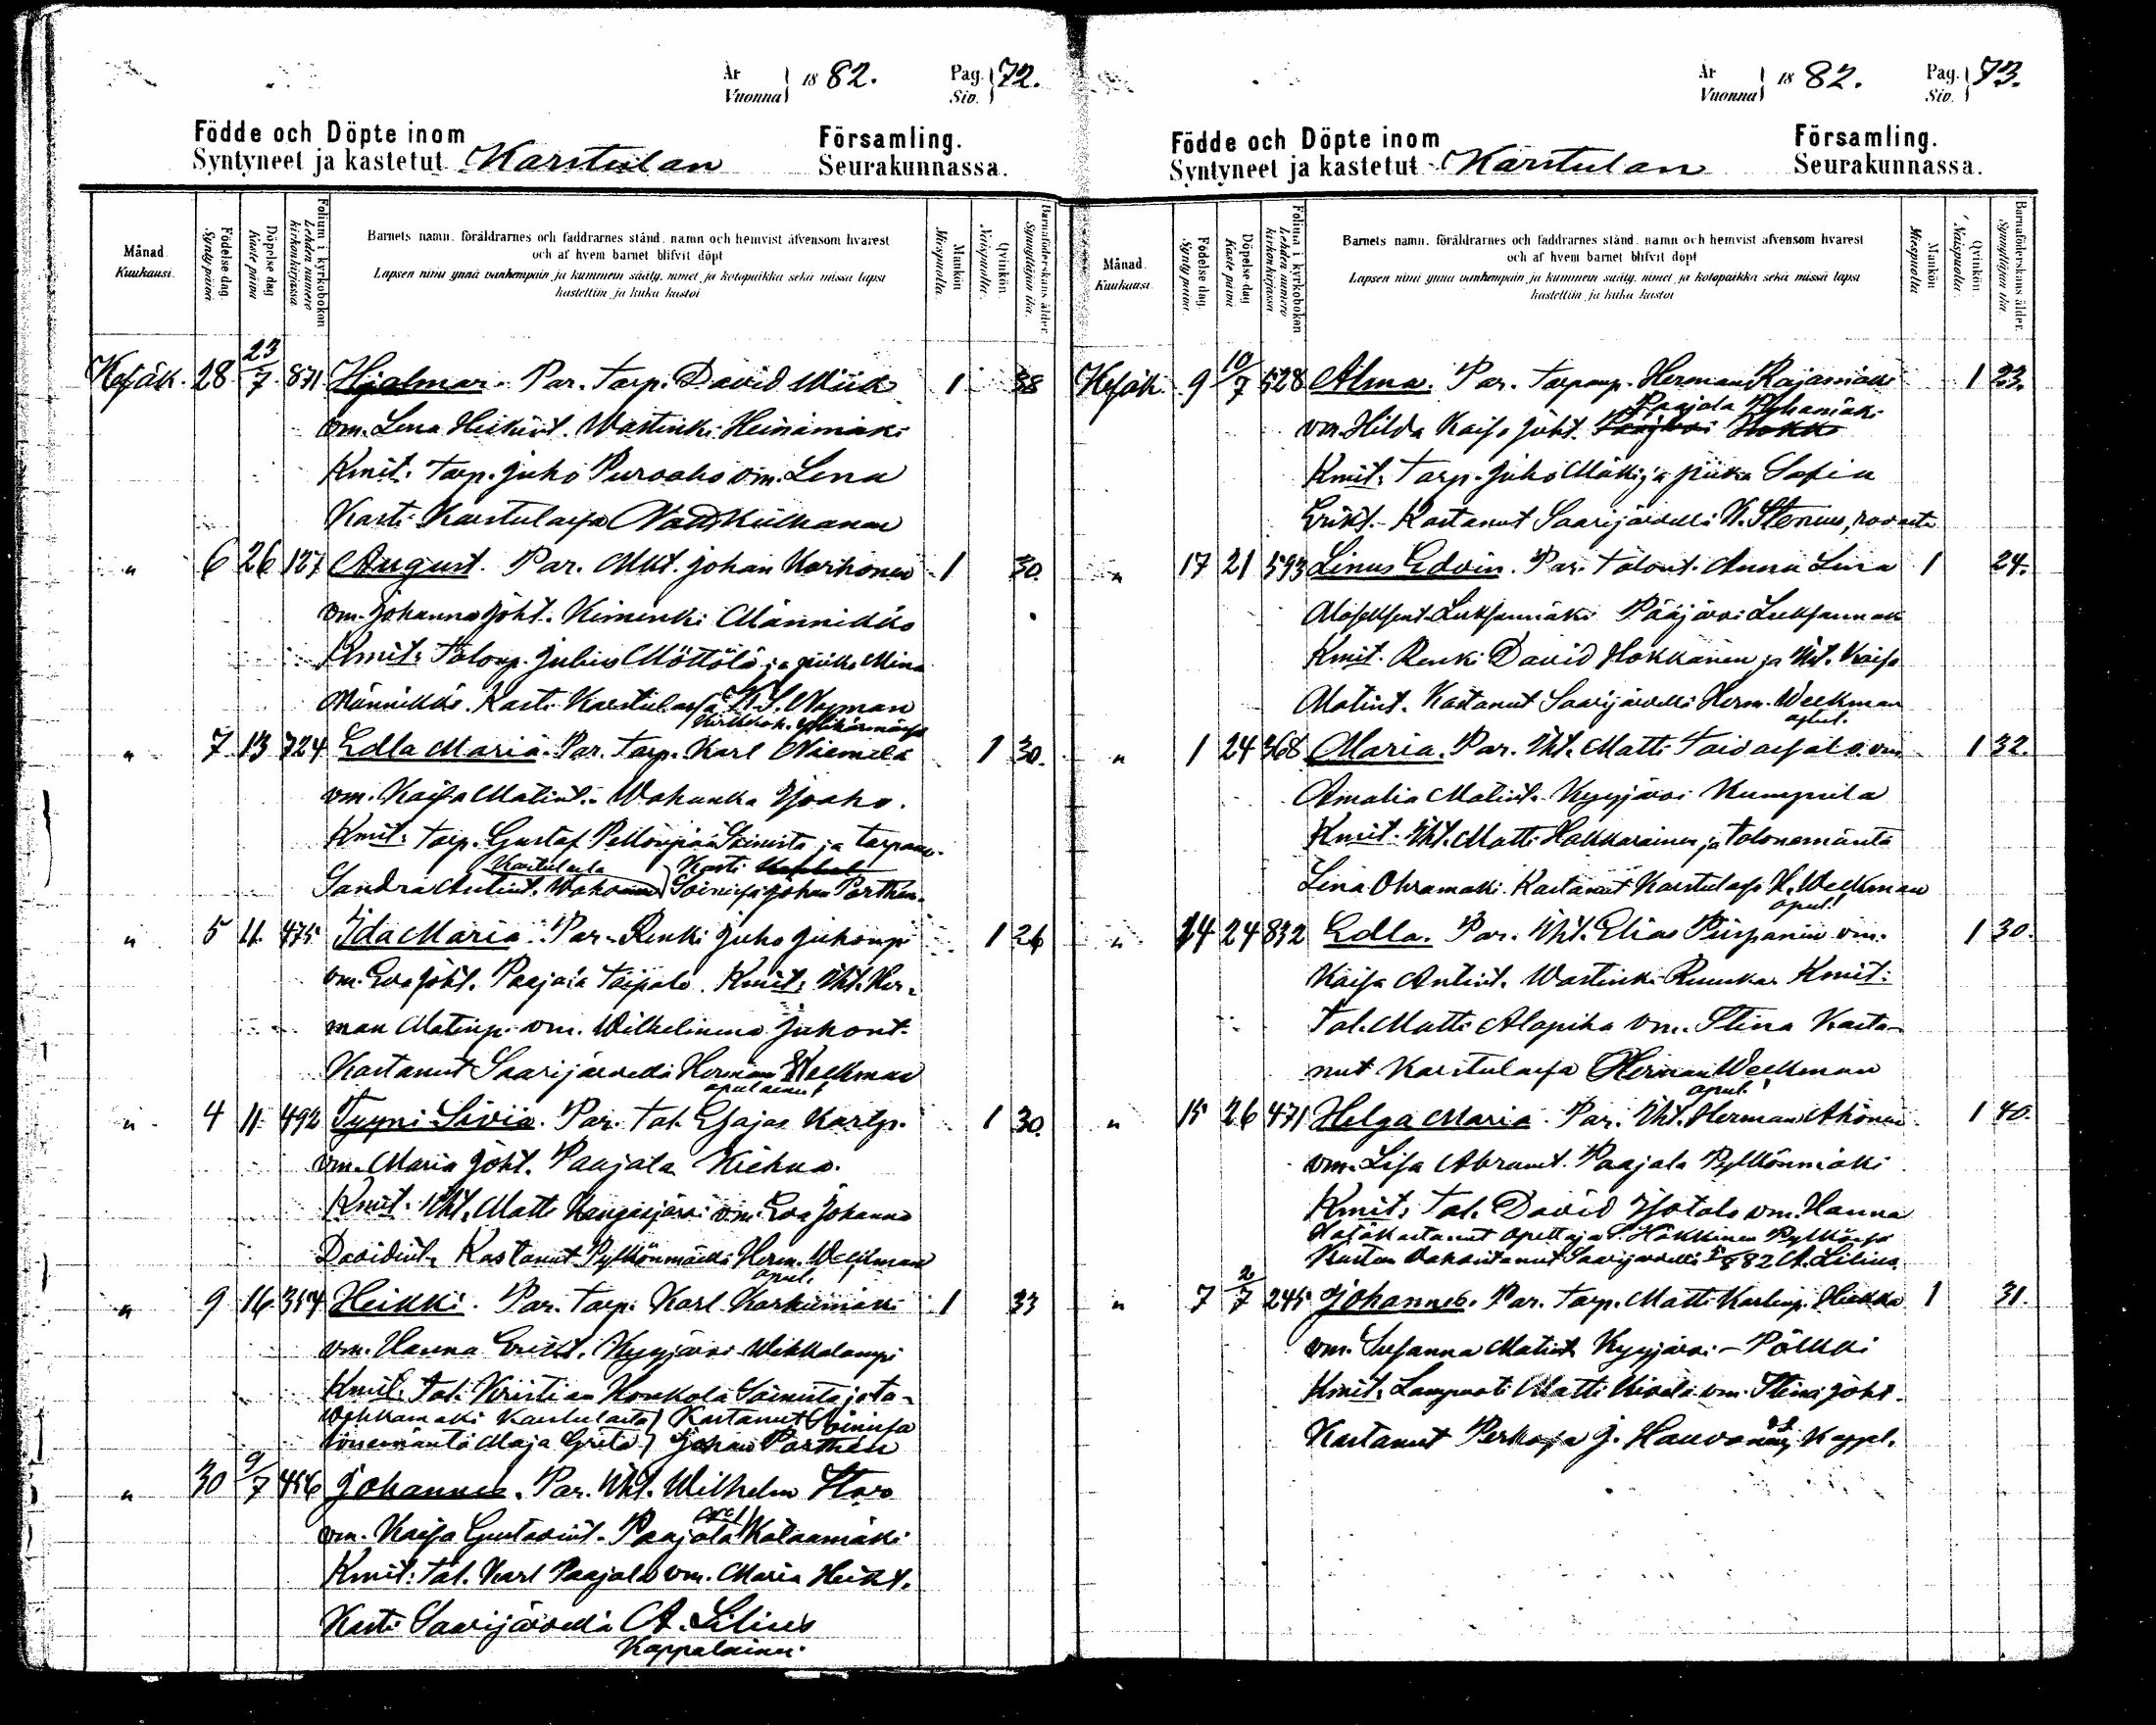 År
Vuonna } 18 82. Pag. } 72.
Siv.
Födde och Döpte inom Församling.
Syntyneet ja kastetut Karstulan Seurakunnassa.
Månad.
Kuukausi.
Födelse dag.
Synty päivä.
Döpelse dag
Kaste päivä
Folium i kyrkoboken
Lehden numero
kirkonkirjassa.
Barnets namn, föräldrarnes och faddrarnes stånd, namn och hemvist äfvensom hvarest
och af hvem barnet blifvit döpt
Lapsen nimi ynnä vanhempain ja kummein sääty, nimet ja kotopaikka sekä missä lapsi
kastettiin ja kuka kastoi
Mankön
Miespuolia.
Qvinkön
Naispuolia.
Barnaföderskans ålder.
Synnyttäjän ikä.
Kesäk. 28 23/7 871 Hjalmar. Par. Torp. David Wiik 1 38
vm. Lena Heikint. Wastinki Heinämäki
Kmit. Torp. Juho Puroaho vm. Lena
Kasti Karstulassa
" 6 26 127 August. Par. Mkt. Johan Korhonen 1 30.
vm. Johanna Joht. Kimenki Männikkö
Kmit: Talonp. Julius Möttölä ja piika Mina
Männikkö. Kasti Karstulassa K. J. Nyman
" 7 13 724 Edla Maria. Par. Torp. Karl Niemelä 1 30.
vm. Kaisa Matint. Wahanka Isoaho.
Kmit: Torp. Gustaf Pellonpää Soinista ja torparin-
Karstulasta Kasti
Sandra Antint. Wahanka Soinissa Johan Parthen.
" 5 11 475 Ida Maria. Par. Renki Juho Juhonp. 1 26
vm. Eva Joht. Paajala Taipale. Kmit: Iht. Her-
man Matinp. vm. Wilhelmina Juhont.
Kastanut Saarijärvellä Herman Weckman
apulainen
" 4 11 492 Tyyni Siviä. Par. Tal. Esajas Karlp. 1 30.
vm. Maria Joht. Paajala Kiehua.
Kmit. Iht. Matti Kangasjärvi vm. Eva Johanna
Davidint. Kastanut Pylkönmäellä Herm. Weckman
apul.
" 9 16 354 Heikki. Par. Torp. Karl Karhumäki 1 33
vm. Hanna Erikt. Kyyjärvi Wikkalampi
Kmit. Tal. Kristian Konkola Soinista ja ta-
Wahkamäki Karstulasta Kastanut Soinissa
lonemäntä Maja Greta Johan Parthen
" 30 9/7 456 Johannes. Par. Iht. Wilhelm Stor
vm. Kaisa Gustavint. Paajala Kolaamäki
Kmit: Tal. Karl Paajala vm. Maria Heikt.
Kasti Saarijärvellä A. Lilius
Kappalainen.
År
Vuonna } 18 82. Pag. } 73.
Siv.
Födde och Döpte inom Församling.
Syntyneet ja kastetut Karstulan Seurakunnassa.
Månad.
Kuukausi.
Födelse dag.
Synty päivä.
Döpelse dag
Kaste päivä
Folium i kyrkoboken
Lehden numero
kirkonkirjassa.
Barnets namn, föräldrarnes och faddrarnes stånd, namn och hemvist äfvensom hvarest
och af hvem barnet blifvit döpt
Lapsen nimi ynnä vanhempain ja kummein sääty, nimet ja kotopaikka sekä missä lapsi
kastettiin ja kuka kastoi
Mankön
Miespuolia
Qvinkön
Naispuolia.
Barnaföderskans ålder.
Synnyttäjän ikä
Kesäk. 9 10/7 528 Alma. Par. Torp. Herman Rajamäki 1 23.
Paajala
vm. Hilda Kaisa Joht. Pääjärvi Hokko
Kmit: Torp. Juho Mäki ja piika Sofia
Erikt. Kastanut Saarijärvellä K. Stenius, rovasti
" 17 21 593 Linus Edvin. Par. Talont. Anna Lina 1 24.
Pääjärvi
Kmit. Renki David Hokkanen ja Iht. Kaisa
Matint. Kastanut Saarijärvellä Herm. Weckman
apul.
" 1 24 368 Maria. Par. Iht. Matti Taivassalo vm. 1 32.
Amalia Matint. Kyyjärvi Kumpula
Kmit. Iht. Matti Hakkarainen ja talonemäntä
Lina Ohramäki. Kastanut Karstulassa H. Weckman
apul.
" 14 24 832 Edla. Par. Iht. Elias Piispanen vm. 1 30.
Kaisa Antint. Wastinki Ruuska. Kmit:
Tal. Matti Alapiha vm. Stina Kasta-
nut Karstulassa Herman Weckman
apul.
" 15 26 471 Helga Maria. Par. Iht. Herman Ahonen 1 40.
vm. Lisa Abramt. Paajala Pylkönmäki
Kmit: Tal. David Isotalo vm. Hanna
Hätäkastanut opettaja S. Häkkinen
Kasteen vahvistanut Saarijärvellä 882 A. Lilius.
" 7 2/7 245 Johannes. Par. Torp. Matti Karlinp. Hiekka 1 31.
vm. Susanna Matint. Kyyjärvi - Pölkki
Kmit: Lampuoti Matti Kivelä vm. Stina Joht.
Kastanut Perhossa J. Hauvonen, v.t. Kappl.